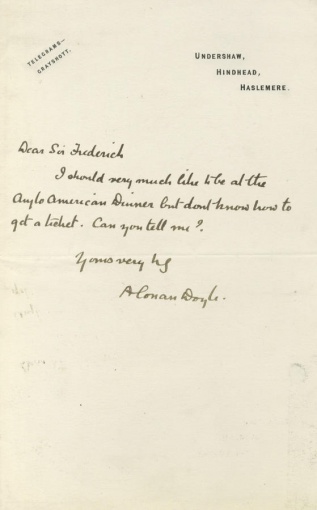 TELEGRAMS—
GRAYSHOTT.
UNDERSHAW,
HINDHEAD,
HASLEMERE.
Dear Sir Frederich
I should very much like to be at the
Anglo American Dinner but dont know how to
get a ticket. Can you tell me?
Yours very
A Conan Doyle.